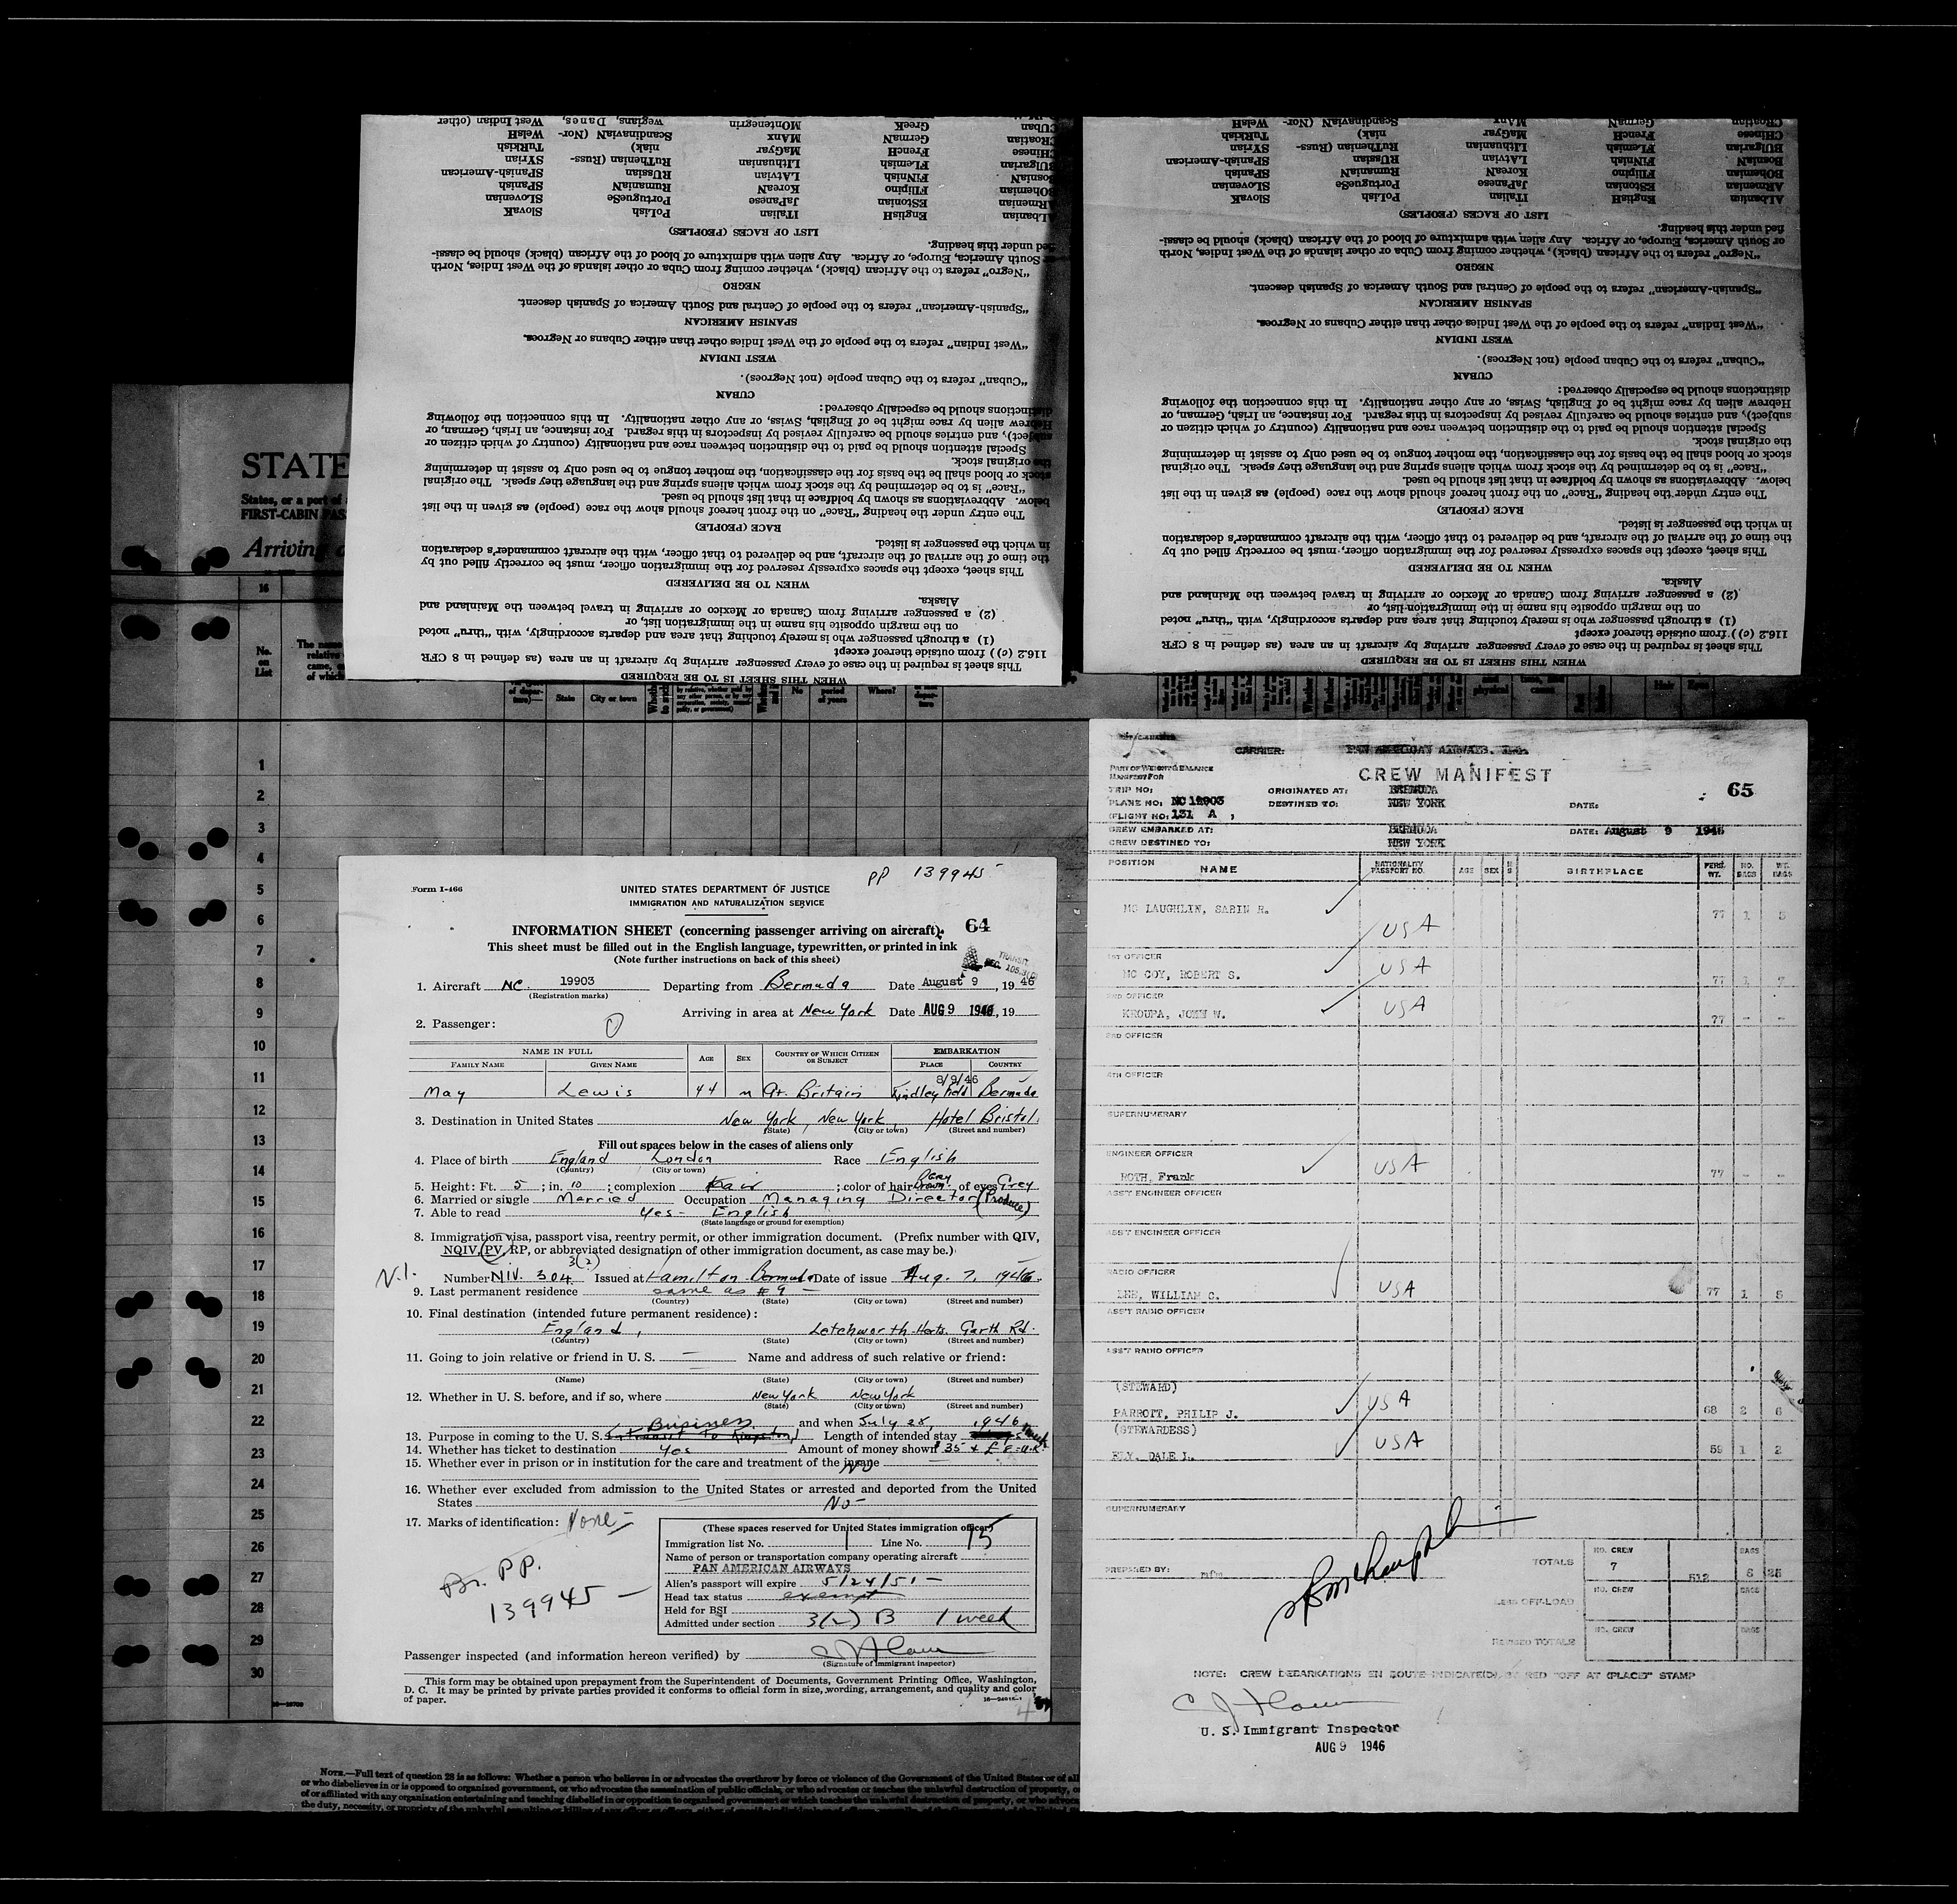 WHEN THIS SHEET IS TO BE REQUIRED
This sheet is required in the case of every passenger arriving by aircraft in an area (as defined in 8 CFR
116.2 (c)) from outside thereof except
(1) a through passenger who is merely touching that area and departs accordingly, with "thru" noted
on the margin opposite his name in the immigration list, or
(2) a passenger arriving from Canada or Mexico or arriving in travel between the Mainland and
Alaska.
WHEN TO BE DELIVERED
This sheet, except the spaces expressly reserved for the immigration officer, must be correctly filled out by
the time of the arrival of the aircraft, and be delivered to that officer, with the aircraft commander's declaration
in which the passenger is listed.
RACE (PEOPLE)
The entry under the heading "Race" on the front hereof should show the race (people) as given in the list
below. Abbreviations as shown by boldface in that list should be used.
"Race" is to be determined by the stock from which aliens spring and the language they speak. The original
stock or blood shall be the basis for the classification, the mother tongue to be used only to assist in determining
the original stock.
Special attention should be paid to the distinction between race and nationality (country of which citizen or
subject), and entries should be carefully revised by inspectors in this regard. For instance, an Irish, German, or
Hebrew alien by race might be of English, Swiss, or any other nationality. In this connection the following
distinctions should be especially observed:
CUBAN
"Cuban" refers to the Cuban people (not Negroes).
WEST INDIAN
"West Indian" refers to the people of the West Indies other than either Cubans or Negroes.
SPANISH AMERICAN
"Spanish-American" refers to the people of Central and South America of Spanish descent.
NEGRO
"Negro" refers to the African (black), whether coming from Cuba or other islands of the West Indies, North
or South America, Europe, or Africa. Any alien with admixture of blood of the African (black) should be classi-
fied under this heading.
LIST OF RACES (PEOPLES)
ALbanian ENglisH ITalian PoLish SlovaK
ARmenian EStonian JaPanese PortugueSe SLOvenian
BOhemian FIlipino KoreaN RumaniaN SPanish
BosniaN FINNish LATvian RUssian SPanish-American
BUlgarian FLemish LIthuanian RuThenian (Russ- SYrian
CHinese FrencH MaGyar niak) TuRkish
CRoatian GermaN MAnx Scandinavian (Nor- WelsH
CUban GreeK MOntenegrin wegians, Danes, West Indian (other
WHEN THIS SHEET IS TO BE REQUIRED
This sheet is required in the case of every passenger arriving by aircraft in an area (as defined in 8 CFR
116.2 (c)) from outside thereof except
(1) a through passenger who is merely touching that area and departs accordingly, with "thru" noted
on the margin opposite his name in the immigration list, or
(2) a passenger arriving from Canada or Mexico or arriving in travel between the Mainland and
Alaska.
WHEN TO BE DELIVERED
This sheet, except the spaces expressly reserved for the immigration officer, must be correctly filled out by
the time of the arrival of the aircraft, and be delivered to that officer, with the aircraft commander's declaration
in which the passenger is listed.
RACE (PEOPLE)
The entry under the heading "Race" on the front hereof should show the race (people) as given in the list
below. Abbreviations as shown by boldface in that list should be used.
"Race" is to be determined by the stock from which aliens spring and the language they speak. The original
stock or blood shall be the basis for the classification, the mother tongue to be used only to assist in determining
the original stock.
Special attention should be paid to the distinction between race and nationality (country of which citizen or
subject), and entries should be carefully revised by inspectors in this regard. For instance, an Irish, German, or
Hebrew alien by race might be of English, Swiss, or any other nationality. In this connection the following
distinctions should be especially observed:
CUBAN
"Cuban" refers to the Cuban people (not Negroes).
WEST INDIAN
"West Indian" refers to the people of the West Indies other than either Cubans or Negroes.
SPANISH AMERICAN
"Spanish-American" refers to the people of Central and South America of Spanish descent.
NEGRO
"Negro" refers to the African (black), whether coming from Cuba or other islands of the West Indies, North
or South America, Europe, or Africa. Any alien with admixture of blood of the African (black) should be classi-
fied under this heading.
LIST OF RACES (PEOPLES)
ALbanian ENglisH ITalian PoLish SlovaK
ARmenian EStonian JaPanese PortugueSe SLOvenian
BOhemian FIlipino KoreaN RumaniaN SPanish
BosniaN FINNish LATvian RUssian SPanish-American
BUlgarian FLemish LIthuanian RuThenian (Russ- SYrian
CHinese FrencH MaGyar niak) TuRkish
CRoatian GermaN MAnx Scandinavian (Nor- WelsH
STATE
States, or a port of
FIRST-CABIN PAS
Arriving
16
No. on List
State City or town
No
period of years
Where?
1
2
3
4
5
6
7
8
9
10
11
12
13
14
15
16
17
18
19
20
21
22
23
24
25
26
27
28
29
30
PP 139945
Form I-466
UNITED STATES DEPARTMENT OF JUSTICE
IMMIGRATION AND NATURALIZATION SERVICE
INFORMATION SHEET (concerning passenger arriving on aircraft). 64
This sheet must be filled out in the English language, typewritten, or printed in ink
(Note further instructions on back of this sheet)
TRANSIT
SEC. 105.3(C)
1. Aircraft NC 19903 Departing from Bermuda Date August 9, 1946
(Registration marks)
Arriving in area at New York Date AUG 9 1946, 19
2. Passenger:
NAME IN FULL AGE SEX COUNTRY OF WHICH CITIZEN OR SUBJECT EMBARKATION
FAMILY NAME GIVEN NAME PLACE COUNTRY
8/9/46
May Lewis 44 m Gt. Britain Kindley Field Bermuda
3. Destination in United States New York, New York, Hotel Bristol.
(State) (City or town) (Street and number)
Fill out spaces below in the cases of aliens only
4. Place of birth England London Race English
(Country) (City or town)
5. Height: Ft. 5; in. 10; complexion Fair; color of hair Grey of eyes Grey
6. Married or single Married Occupation Managing Director (Produce)
7. Able to read Yes - English
(State language or ground for exemption)
8. Immigration visa, passport visa, reentry permit, or other immigration document. (Prefix number with QIV,
NQIV, PV, RP, or abbreviated designation of other immigration document, as case may be.)
3(2)
N.I. Number NIV. 304 Issued at Hamilton Bermuda Date of issue Aug. 7. 1946.
9. Last permanent residence same as # 9 -
(Country) (State) (City or town) (Street and number)
10. Final destination (intended future permanent residence):
England, Letchworth-Herts. Garth Rd.
(Country) (State) (City or town) (Street and number)
11. Going to join relative or friend in U. S. — Name and address of such relative or friend:
(Name) (State) (City or town) (Street and number)
12. Whether in U. S. before, and if so, where New York New York
(State) (City or town) (Street and number)
Business and when July 28, 1946
13. Purpose in coming to the U. S. in transit to Kingston Length of intended stay week
14. Whether has ticket to destination Yes Amount of money shown $35 + £8-U.K.
15. Whether ever in prison or in institution for the care and treatment of the insane No
16. Whether ever excluded from admission to the United States or arrested and deported from the United
States No-
17. Marks of identification: None -
Br. PP.
139945 —
(These spaces reserved for United States immigration officer)
Immigration list No. 1 Line No. 15
Name of person or transportation company operating aircraft
PAN AMERICAN AIRWAYS
Alien's passport will expire 5/24/51 -
Head tax status exempt
Held for BSI
Admitted under section 3(2) B 1 week
Passenger inspected (and information hereon verified) by
(Signature of immigrant inspector)
This form may be obtained upon prepayment from the Superintendent of Documents, Government Printing Office, Washington,
D. C. It may be printed by private parties provided it conforms to official form in size, wording, arrangement, and quality and color
of paper.
CARRIER: PAN AMERICAN AIRWAYS, Inc.
PART OF WEIGHT & BALANCE
MANIFEST FOR
CREW MANIFEST
65
TRIP NO: ORIGINATED AT: BERMUDA
PLANE NO: NC 19903 DESTINED TO: NEW YORK DATE:
FLIGHT NO: 131 A
CREW EMBARKED AT: BERMUDA DATE: August 9 1946
CREW DESTINED TO: NEW YORK
POSITION NAME NATIONALITY PASSPORT NO. AGE SEX BIRTHPLACE PERS. WT. NO. BAGS WT. BAGS
MC LAUGHLIN, SABIN R. USA 77 1 5
1ST OFFICER
MC COY, ROBERT S. USA 77 1 7
2ND OFFICER
KROUPA, JOHN W. USA 77 - -
3RD OFFICER
4TH OFFICER
SUPERNUMERARY
ENGINEER OFFICER
ROTH, Frank USA 77 - -
ASS'T ENGINEER OFFICER
ASS'T ENGINEER OFFICER
RADIO OFFICER
LEE, WILLIAM C. USA 77 1 5
ASS'T RADIO OFFICER
ASS'T RADIO OFFICER
(STEWARD)
PARROTT, PHILIP J. USA 68 2 6
(STEWARDESS)
ELY, DALE L. USA 59 1 2
SUPERNUMERARY
PREPARED BY: mfm
TOTALS NO. CREW 7 512 BAGS 6 25
LESS OFF-LOAD NO. CREW BAGS
REVISED TOTALS NO. CREW BAGS
NOTE: CREW DEBARKATIONS EN ROUTE INDICATED BY RED "OFF AT (PLACE)" STAMP
U. S. Immigrant Inspector
AUG 9 1946
NOTE.—Full text of question 28 is as follows: Whether a person who believes in or advocates the overthrow by force or violence of the Government of the United States or of all
or who disbelieves in or is opposed to organized government, or who advocates the assassination of public officials, or who advocates or teaches the unlawful destruction of property, o
of or affiliated with any organization entertaining and teaching disbelief in or opposition to organized government or which teaches the unlawful destruction of property, or who advoca